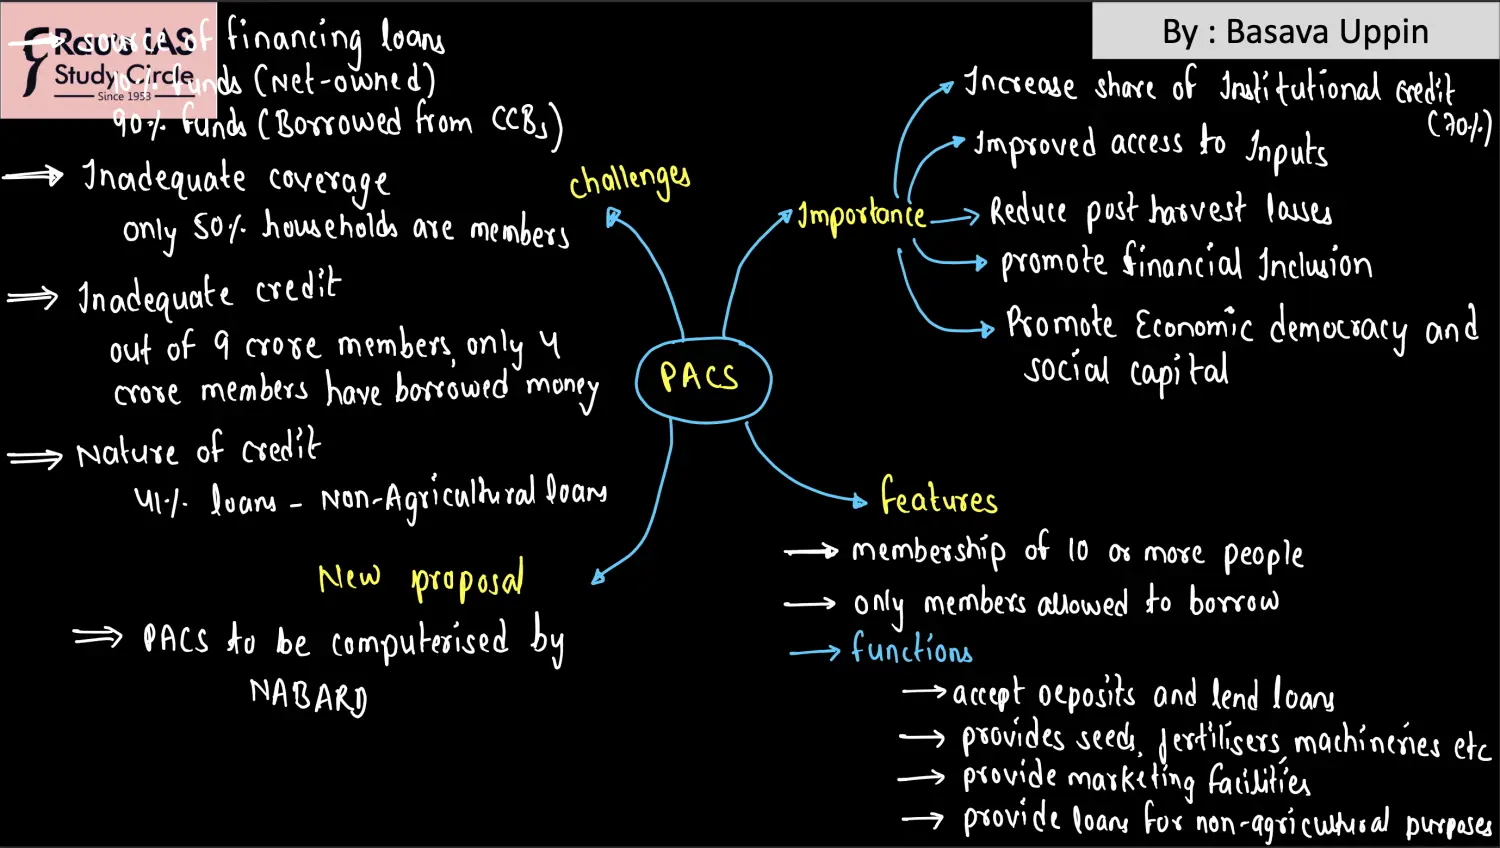 source of financing loans
10% funds (Net-owned)
90% funds (Borrowed from CCBs)
Rau's IAS
Study Circle
Since 1953
Inadequate coverage
only 50% households are members
Inadequate credit
out of 9 crore members, only 4
crore members have borrowed money
Nature of credit
41% loans - Non-Agricultural loans
challenges
New proposal
PACS to be computerised by
NABARD
PACS
By : Basava Uppin
Importance
Increase share of Institutional credit
(70%)
Improved access to Inputs
Reduce post harvest losses
promote financial Inclusion
Promote Economic democracy and
social capital
features
membership of 10 or more people
only members allowed to borrow
functions
accept deposits and lend loans
provides seeds, fertilisers, machineries etc
provide marketing facilities
provide loans for non-agricultural purposes